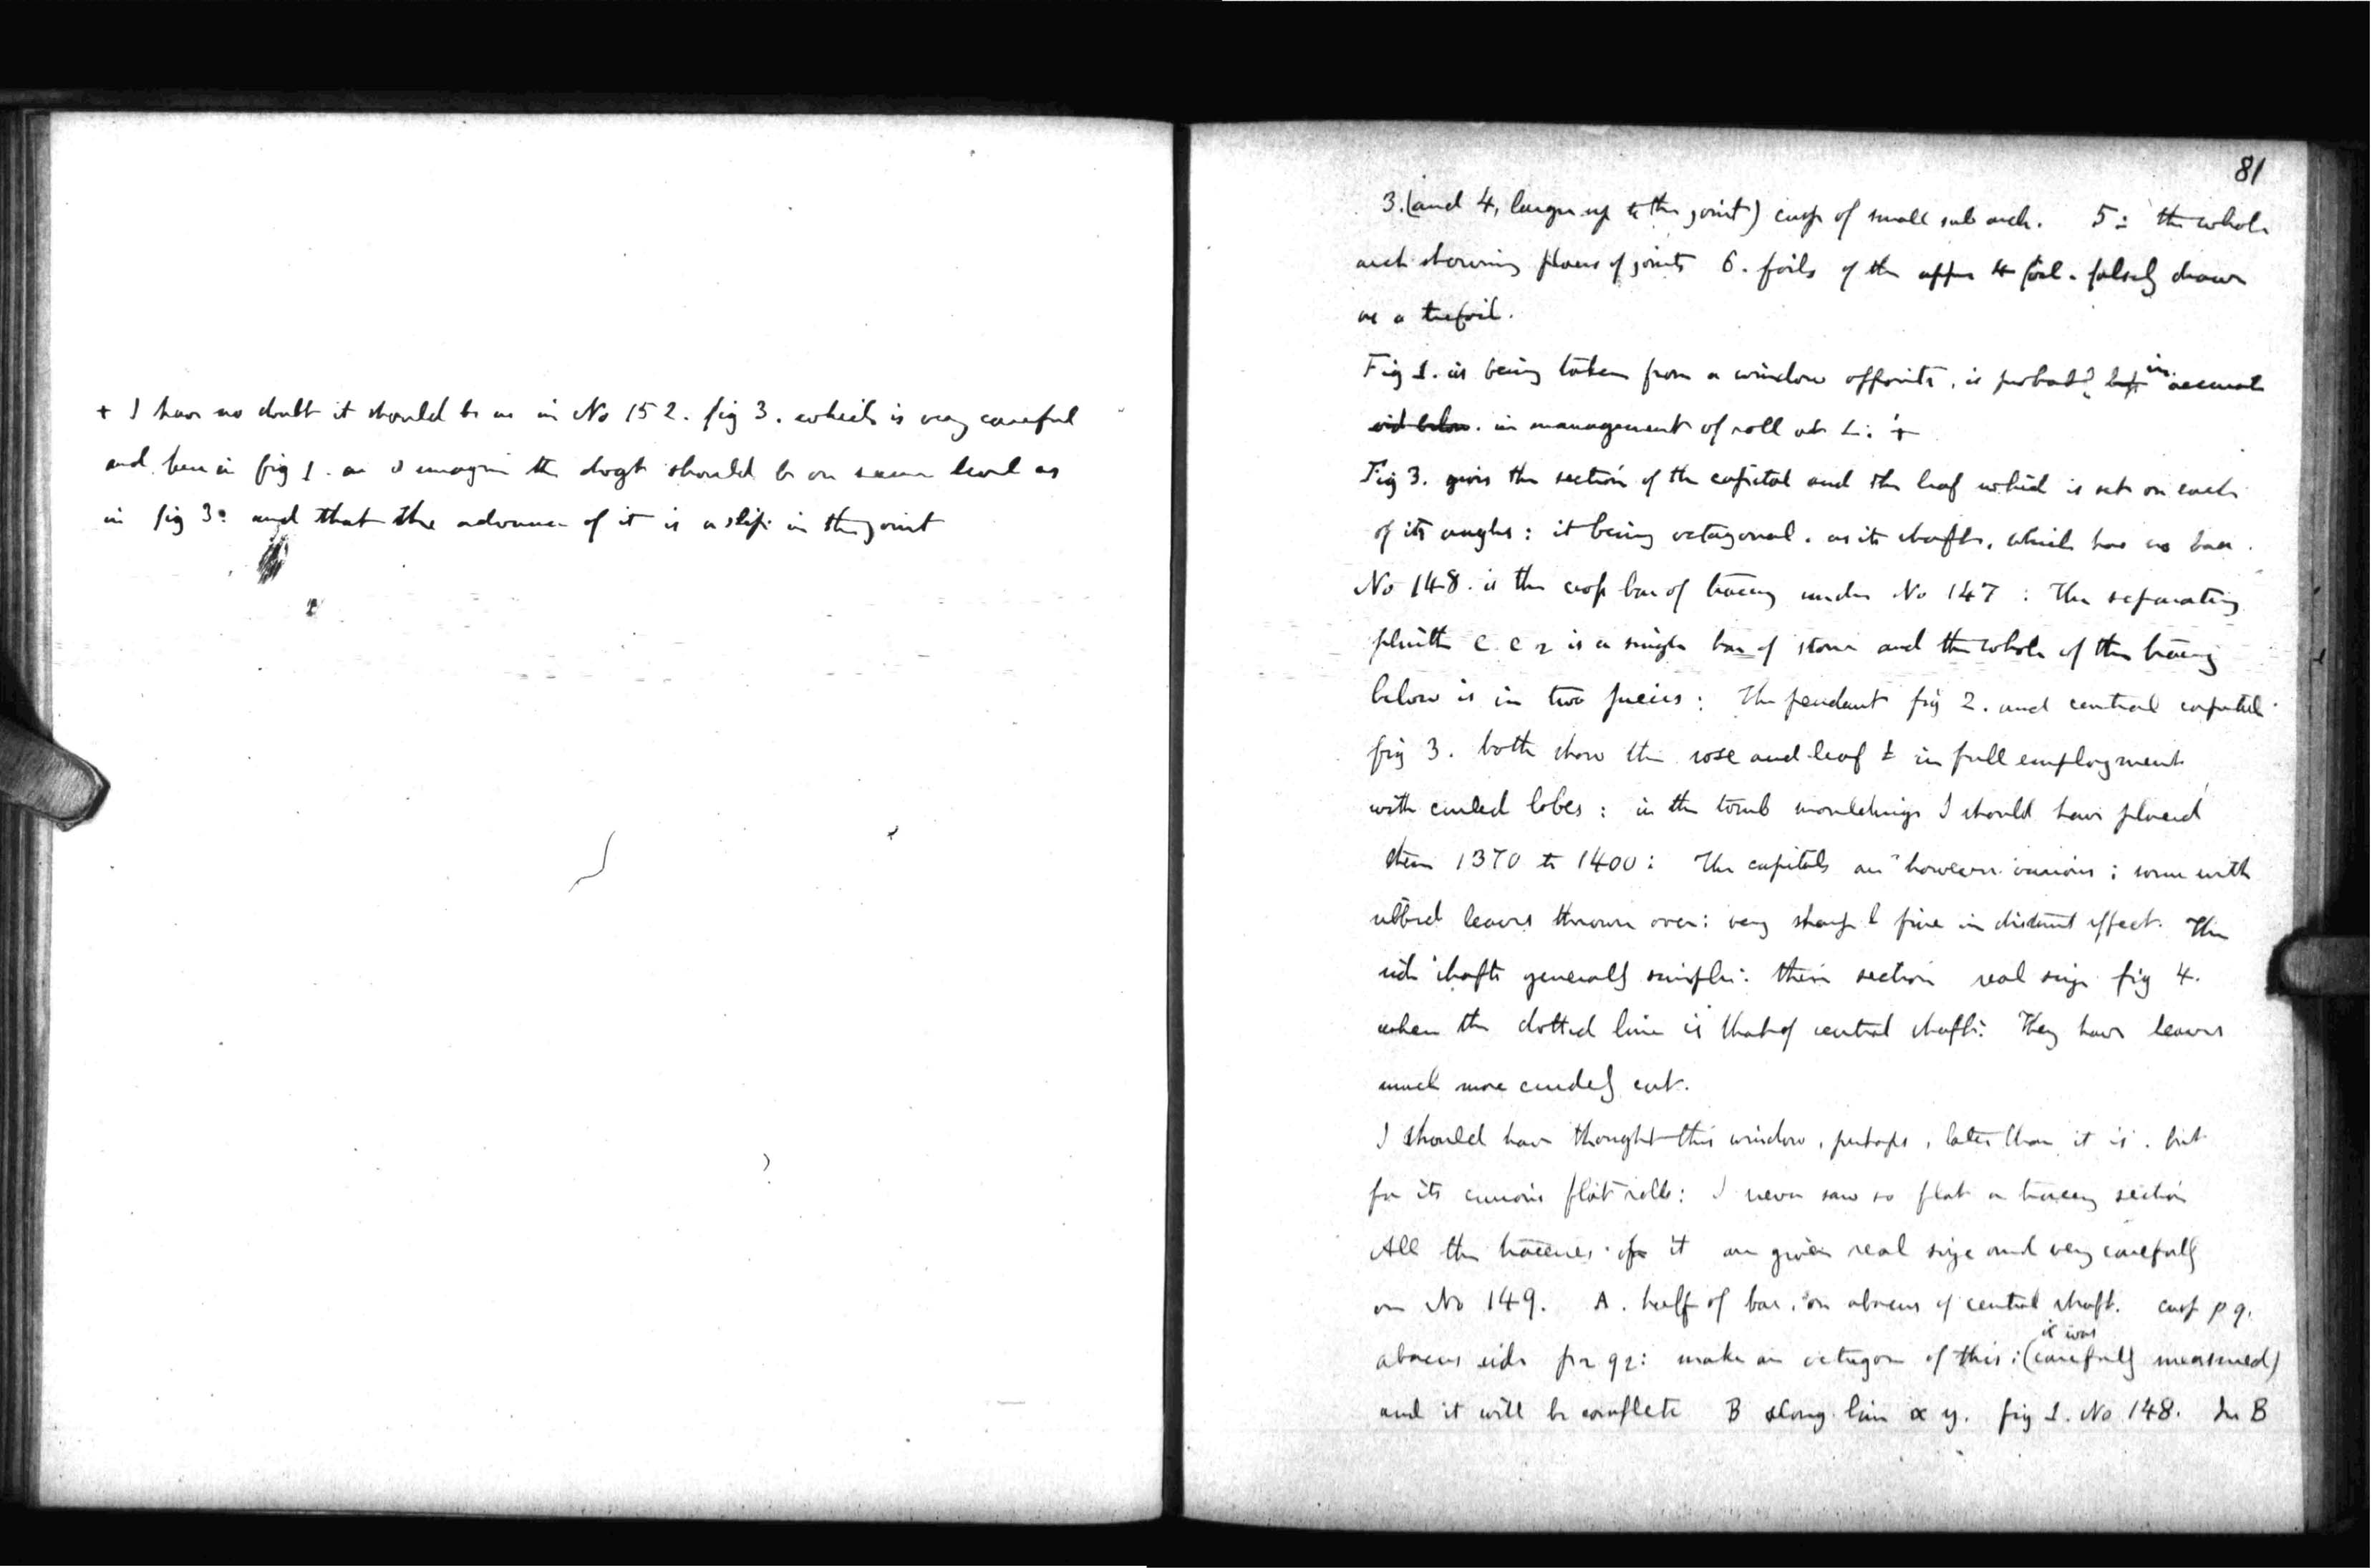 + I have no doubt it should be as in No 152. fig 3. which is very careful
and here in fig 1. as I imagine the dogt should be on same level as
in fig 3: and that the advance of it is a slip in the joint
81
3. (and 4, larger up to the joint) cusp of small sub arch. 5: the whole
arch showing places of joints 6. foils of the upper 4 foil. falsely drawn
as a trefoil.
Fig 1. as being taken from a window opposite, is probably in accurate
vid below. in management of roll at L: +
Fig 3. gives the section of the capital and the leaf which is set on each
of its angles: it being octagonal. as its shafts, which has no base.
No 148. is the cross bar of tracery under No 147: The separating
plinth c. c 2 is a single bar of stone and the whole of the tracery
below is in two pieces: The pendant fig 2. and central capital
fig 3. both show the rose and leaf t in full employment
with curled lobes: in the tomb mouldings I should have placed
them 1370 to 1400: The capitals are however various; some with
ribbed leaves thrown over: very sharp & fine in distant effect. The
side shafts generally simpler: their section real size fig 4.
when the dotted line is that of central shaft: They have leaves
much more crudely cut.
I should have thought this window, perhaps, later than it is. but
for its curious flat rolls: I never saw so flat a tracery section
All the traceries of it are given real size and very carefully
on No 149. A. half of bar, on abacus of central shaft. cusp p q.
abacus side p2 q2: make an octagon of this: (it was carefully measured)
and it will be complete B along line x y. fig 1. No 148. In B